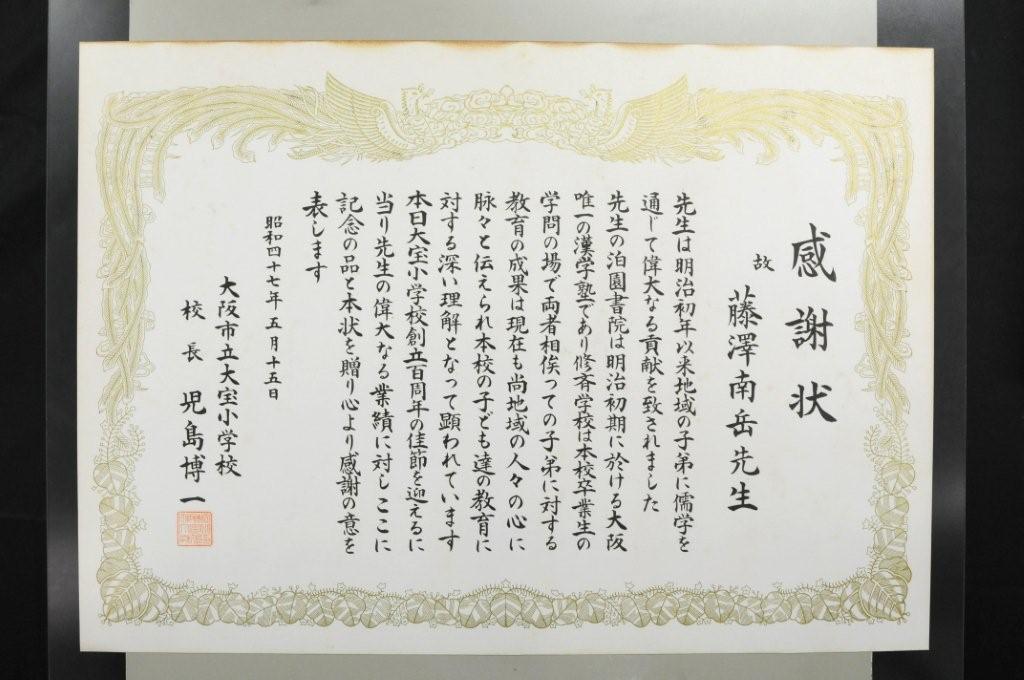 感謝状
故
藤澤南岳先生
先生は明治初年以来地域の子弟に儒学を
通じて偉大なる貢献を致されました
先生の泊園書院は明治初期に於ける大阪
唯一の漢学塾であり修斉学校は本校卒業生の
学問の場で両者相俟っての子弟に対する
教育の成果は現在も尚地域の人々の心に
脉々と伝えられ本校の子ども達の教育に
対する深い理解となって顕われています
本日大宝小学校創立百周年の佳節を迎えるに
当り先生の偉大なる業績に対しここに
記念の品と本状を贈り心より感謝の意を
表します
昭和四十七年五月十五日
大阪市立大宝小学校
校長 児島博一